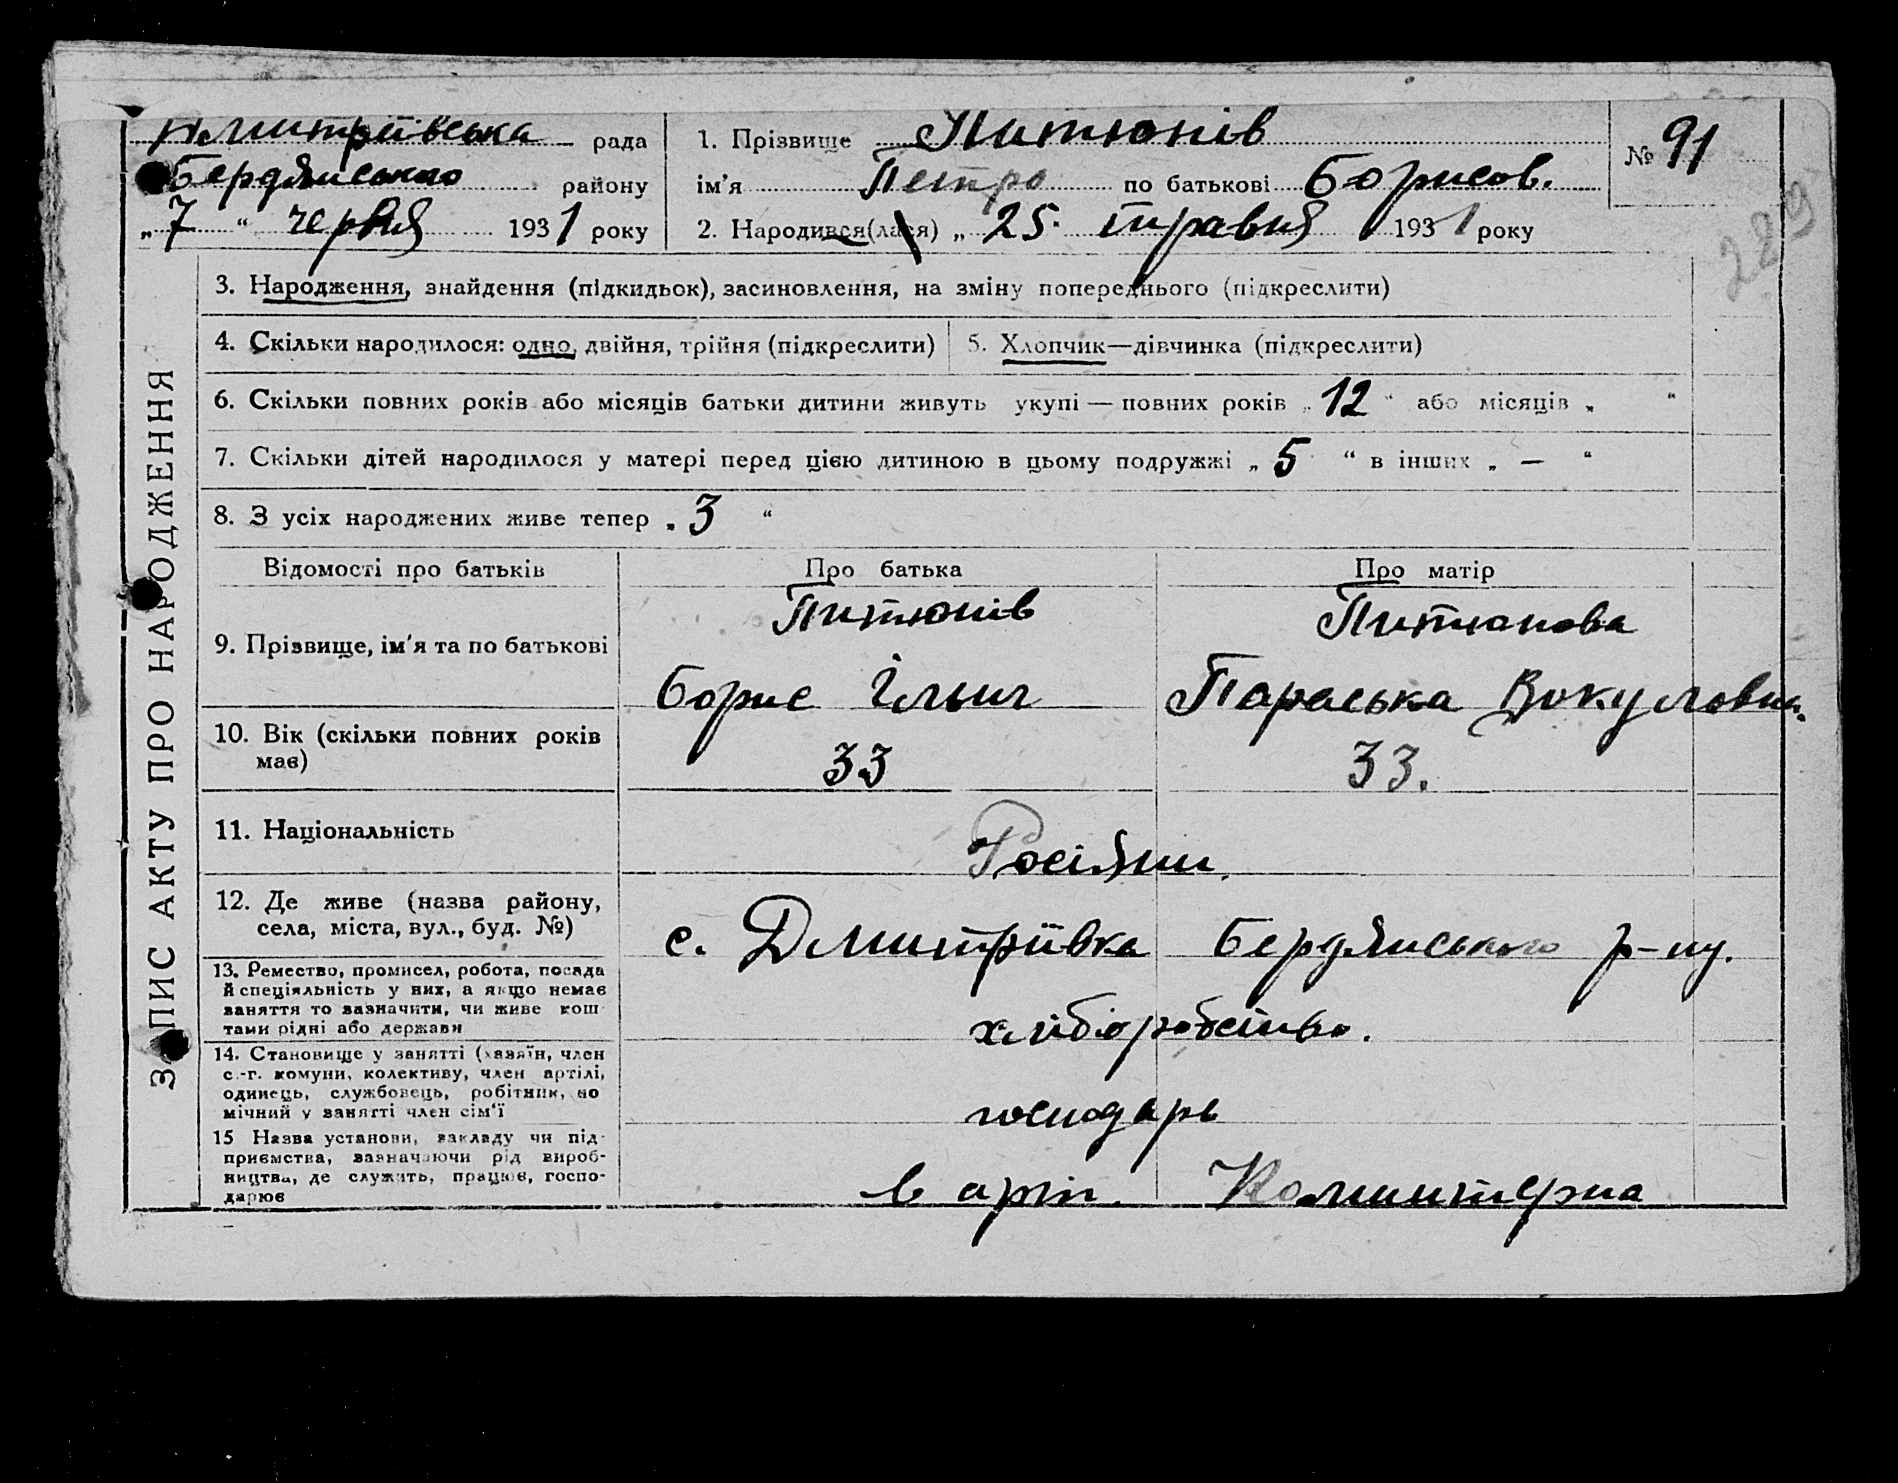 Дмитріївська рада
Бердянського району
„ 7 “ червня 1931 року
1. Прізвище Питюнів
ім'я Петро по батькові Борисов.
2. Народився(лася) „ 25 травня 1931 року
№ 91
229
ЗАПИС АКТУ ПРО НАРОДЖЕННЯ
3. Народження, знайдення (підкидьок), засиновлення, на зміну попереднього (підкреслити)
4. Скільки народилося: одно, двійня, трійня (підкреслити)
5. Хлопчик—дівчинка (підкреслити)
6. Скільки повних років або місяців батьки дитини живуть укупі — повних років „ 12 “ або місяців „ “
7. Скільки дітей народилося у матері перед цією дитиною в цьому подружжі „ 5 “ в інших „ — “
8. З усіх народжених живе тепер „ 3 “
Відомості про батьків
Про батька
Про матір
9. Прізвище, ім'я та по батькові
Питюнів
Борис Ільич
Питюнова
Параська Вокуловна.
10. Вік (скільки повних років
має)
33
33.
11. Національність
Росіяни.
12. Де живе (назва району,
села, міста, вул., буд. №)
с. Дмитріївка Бердянського р-ну.
13. Ремество, промисел, робота, посада
й спеціяльність у них, а якщо немає
заняття то зазначити, чи живе кош
тами рідні або держави
хліборобство.
14. Становище у занятті (хазяїн, член
с.-г. комуни, колективу, член артілі,
одинець, службовець, робітник, по
мічний у занятті член сім'ї
господарь
15 Назва установи, закладу чи під-
приємства, зазначаючи рід вироб-
ництва, де служить, працює, госпо-
дарює
в арт. Коминтерна